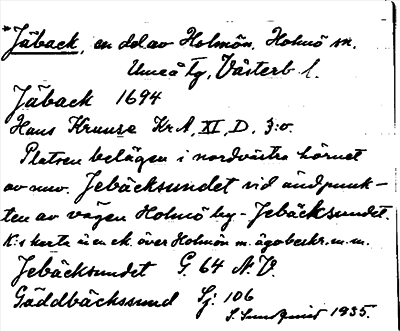 *Jäback, en del av Holmön, Holmö sn.
Umeå tg, Västerb. l.
Jäback 1694
Hans Kruuse Kr.A, XI, D, 3:o.
Platsen belägen i nordvästra hörnet
av nuv. Jebäcksundet vid ändpunk-
ten av vägen Holmö by - Jebäcksundet.
K:s karta är en ek. över Holmön m. ägobeskr. m.m.
Jebäcksundet G. 64 N.V.
Gäddbäckssund Sj. 106
S. Sundqvist 1935.